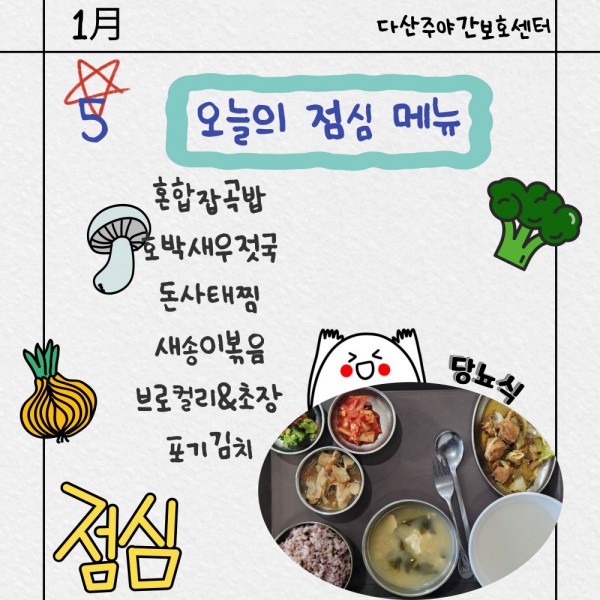 1月
다산주야간보호센터
5
오늘의 점심 메뉴
혼합잡곡밥
호박새우젓국
돈사태찜
새송이볶음
브로컬리&초장
포기김치
당뇨식
점심